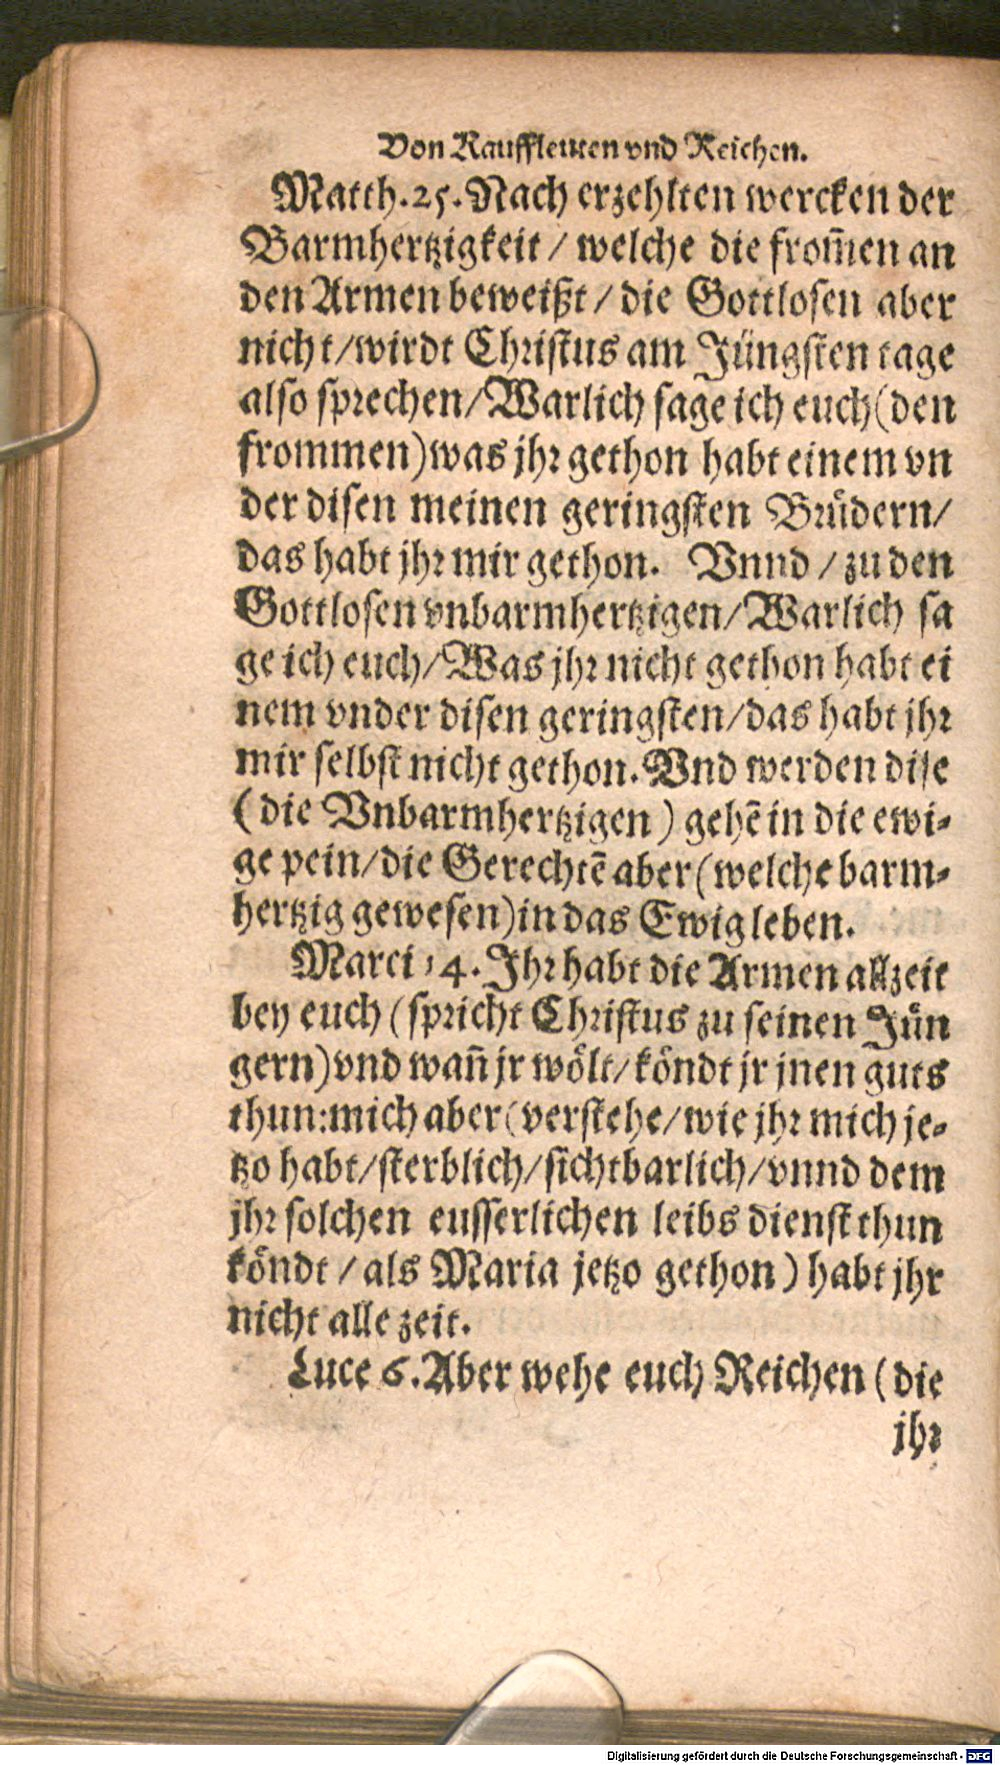 Von Kauffleuten vnd Reichen.
Matth. 25. Nach erzehlten wercken der
Barmhertzigkeit / welche die from̃en an
den Armen beweißt / die Gottlosen aber
nicht / wirdt Christus am Jüngsten tage
also sprechen / Warlich sage ich euch (den
frommen) was jhr gethon habt einem vn
der disen meinen geringsten Brüdern /
das habt jhr mir gethon. Vnnd / zu den
Gottlosen vnbarmhertzigen / Warlich sa
ge ich euch / Was jhr nicht gethon habt ei
nem vnder disen geringsten / das habt jhr
mir selbst nicht gethon. Vnd werden dise
(die Vnbarmhertzigen) gehẽ in die ewi-
ge pein / die Gerechtẽ aber (welche barm-
hertzig gewesen) in das Ewig leben.
Marci 14. Jhr habt die Armen allzeit
bey euch (spricht Christus zu seinen Jün
gern) vnd wañ jr wölt / köndt jr jnen guts
thun: mich aber (verstehe / wie jhr mich je-
tzo habt / sterblich / sichtbarlich / vnnd dem
jhr solchen eusserlichen leibs dienst thun
köndt / als Maria jetzo gethon) habt jhr
nicht alle zeit.
Luce 6. Aber wehe euch Reichen (die
jhr
Digitalisierung gefördert durch die Deutsche Forschungsgemeinschaft - DFG